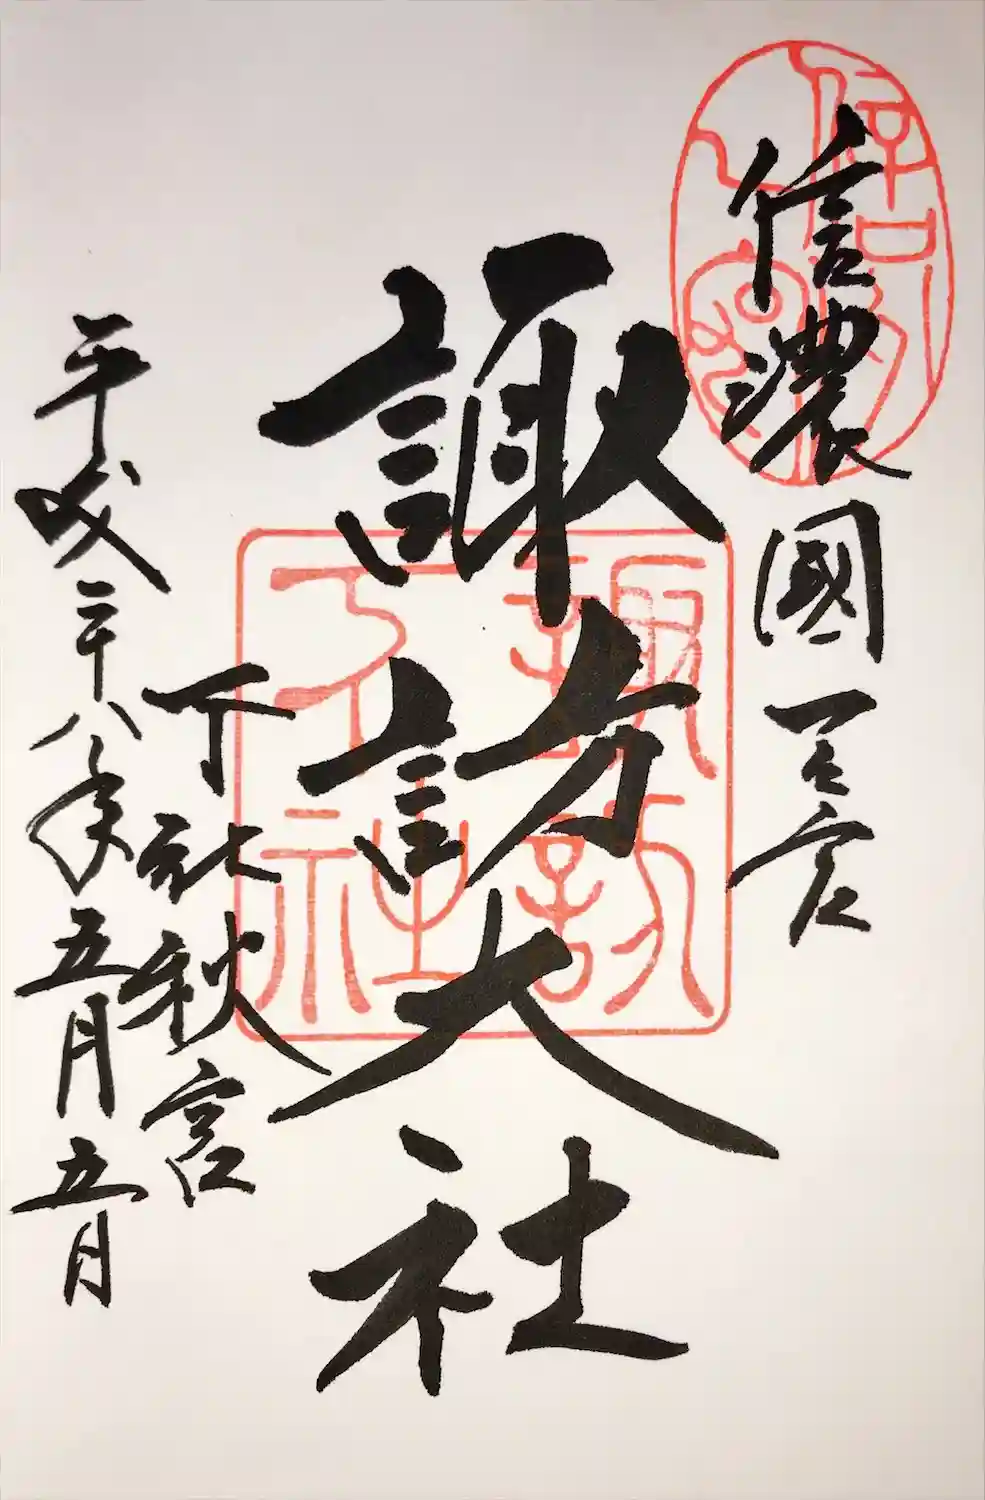 信濃國一之宮
諏訪大社
下社秋宮
平成二十八年五月五日
諏訪大社